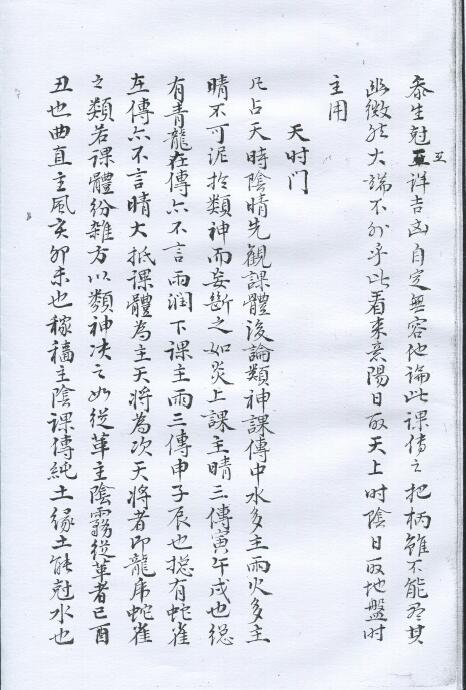 泰生尅五詳吉凶自定無容他論此課傳之把柄雖不能盡其
幽微然大端不外乎此看來意陽日取天上时陰日取地盤时
主用
天时门
凡占天時陰晴先観課體後論類神課傳中水多主雨火多主
晴不可泥扵類神而妄斷之如炎上課主晴三傳寅午戌也縂
有青龍在傳亦不言雨润下課主雨三傳申子辰也摠有蛇雀
在傳亦不言晴大抵課體為主天將為次天將者即龍虎蛇雀
之類若課體紛雜方以類神决之如從革主陰霧從革者巳酉
丑也曲直主風亥卯未也稼穡主陰課傳純土縁土能尅水也